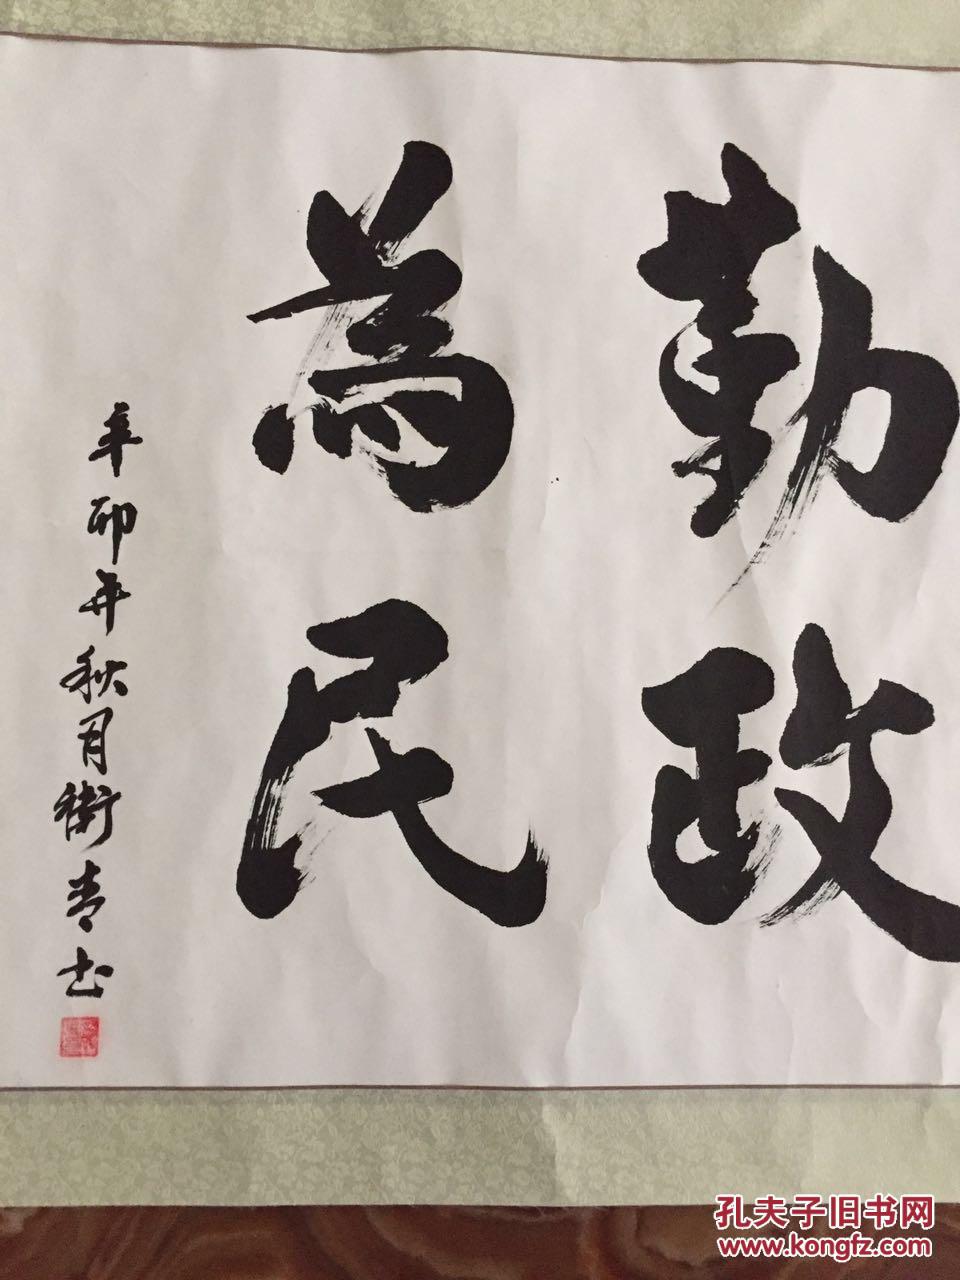 勤政
為民
辛卯年秋月衛青书
孔夫子旧书网
www.kongfz.com